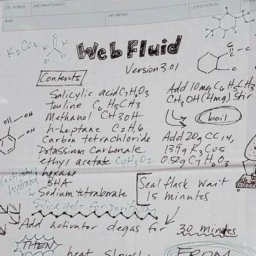 K2CO3
Web Fluid
Version 3.01
Contents
Salicylic acid C7H6O3
Toluene C6H5CH3
Methanol CH3OH
n-heptane
Carbon tetrachloride
Potassium Carbonate
ethyl acetate C4H8O2
hexane
BHA
Sodium tetraborate
Silica gel for purifying
Add 10mg C6H5CH3
CH3OH (4mg) Stir
boil
Add 20g CCl4,
Seal flask wait
15 minutes
Add activator degas for 30 minutes
THEN
heat slowly
FROM